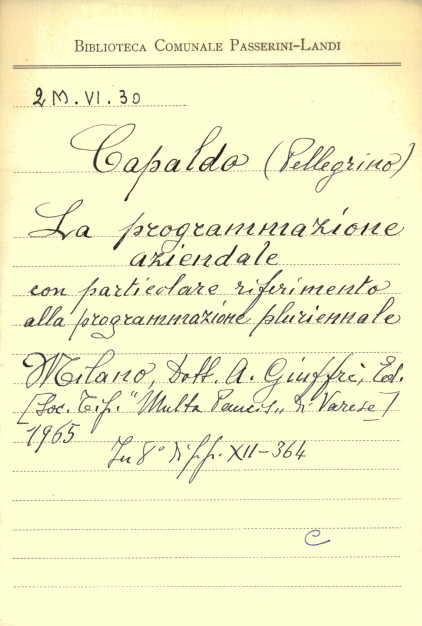 BIBLIOTECA COMUNALE PASSERINI-LANDI
2 M. VI. 30
Capaldo (Pellegrino)
La programmazione
aziendale
con particolare riferimento
alla programmazione pluriennale
Milano, Dott. A. Giuffrè, Ed.
[Soc. Tip. "Multa Paucis" di Varese]
1965
In 8° di pp. XII-364
C